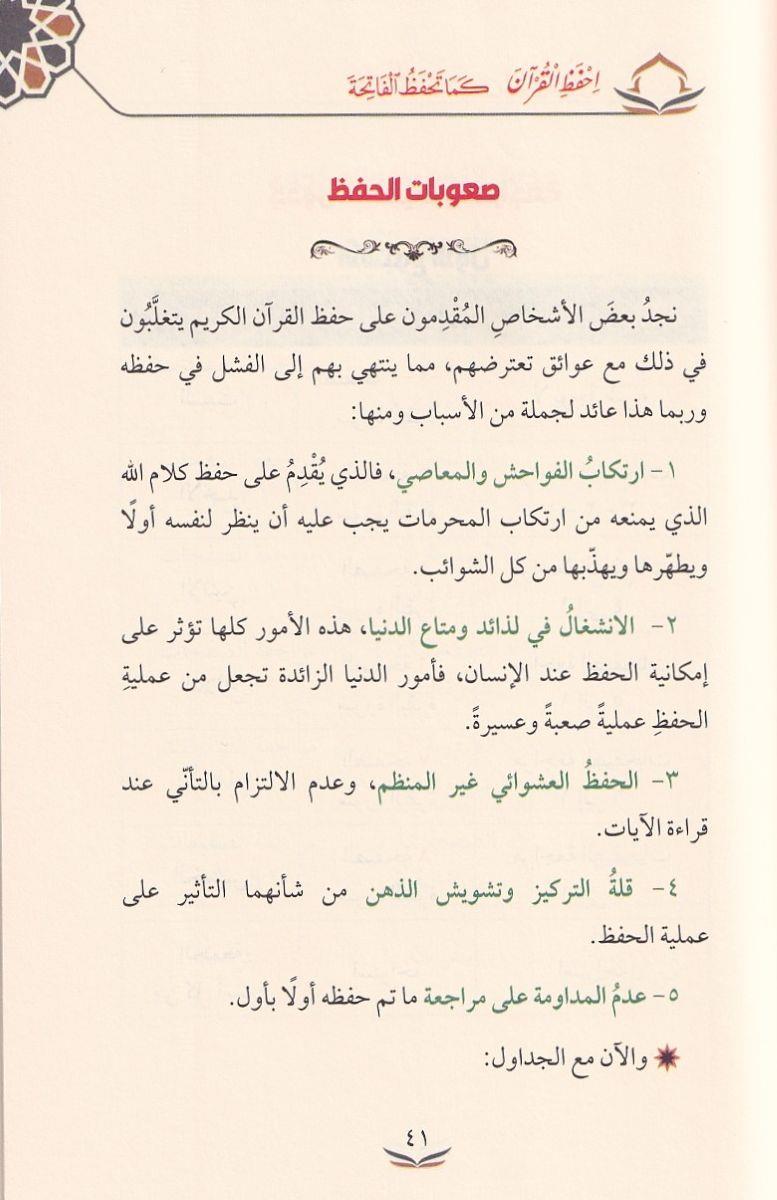 اِحْفَظِ الْقُرْآنَ كَمَا تَحْفَظُ الْفَاتِحَةَ
صعوبات الحفظ
نجدُ بعضَ الأشخاصِ المُقْدِمون على حفظ القرآن الكريم يتغلَّبُون
في ذلك مع عوائق تعترضهم، مما ينتهي بهم إلى الفشل في حفظه
وربما هذا عائد لجملة من الأسباب ومنها:
١- ارتكابُ الفواحش والمعاصي، فالذي يُقْدِمُ على حفظ كلام الله
الذي يمنعه من ارتكاب المحرمات يجب عليه أن ينظر لنفسه أولًا
ويطهّرها ويهذّبها من كل الشوائب.
٢- الانشغالُ في لذائد ومتاع الدنيا، هذه الأمور كلها تؤثر على
إمكانية الحفظ عند الإنسان، فأمور الدنيا الزائدة تجعل من عمليةِ
الحفظِ عمليةً صعبةً وعسيرةً.
٣- الحفظُ العشوائي غير المنظم، وعدم الالتزام بالتأنّي عند
قراءة الآيات.
٤- قلةُ التركيز وتشويش الذهن من شأنهما التأثير على
عملية الحفظ.
٥- عدمُ المداومة على مراجعة ما تم حفظه أولًا بأول.
والآن مع الجداول:
٤١